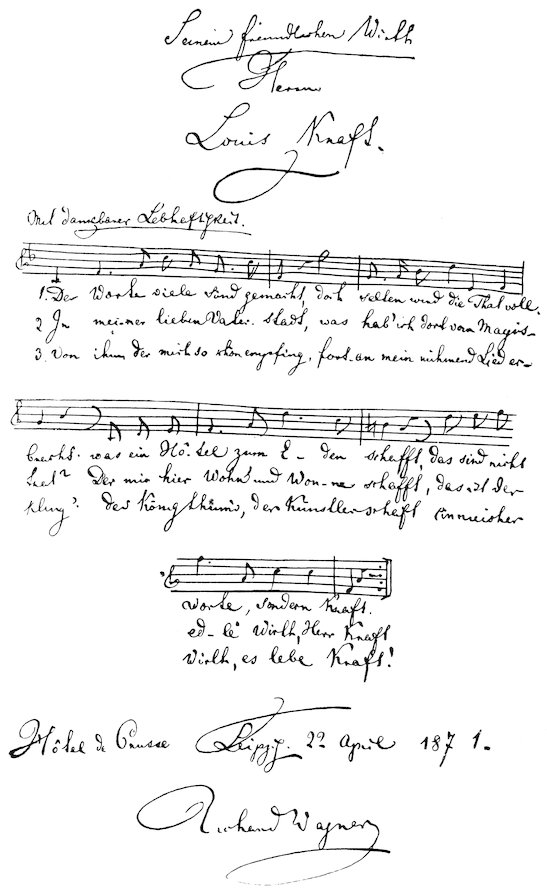 Seinem freundlichen Wirth
Herrn
Louis Kraft.
Mit dankbarer Lebhaftigkeit.
1. Der Worte viele sind gemacht, doch selten wird die That voll-
2 In meiner lieben Vater-stadt, was hab' ich dort vom Magis-
3. Von ihm der mich so schön empfing, fort-an mein rühmend Lied er-
bracht. was ein Hô-tel zum E-den schafft, das sind nicht
trat? Der mir hier Wohn' und Won-ne schafft, das ist der
kling'. der König thürm's, der Künstler schafft
Worte, sondern Kraft.
ed-le Wirth, Herr Kraft
Wirth, es lebe Kraft!
Hôtel de Prusse Leipzg. 22 April 1871.
Richard Wagner